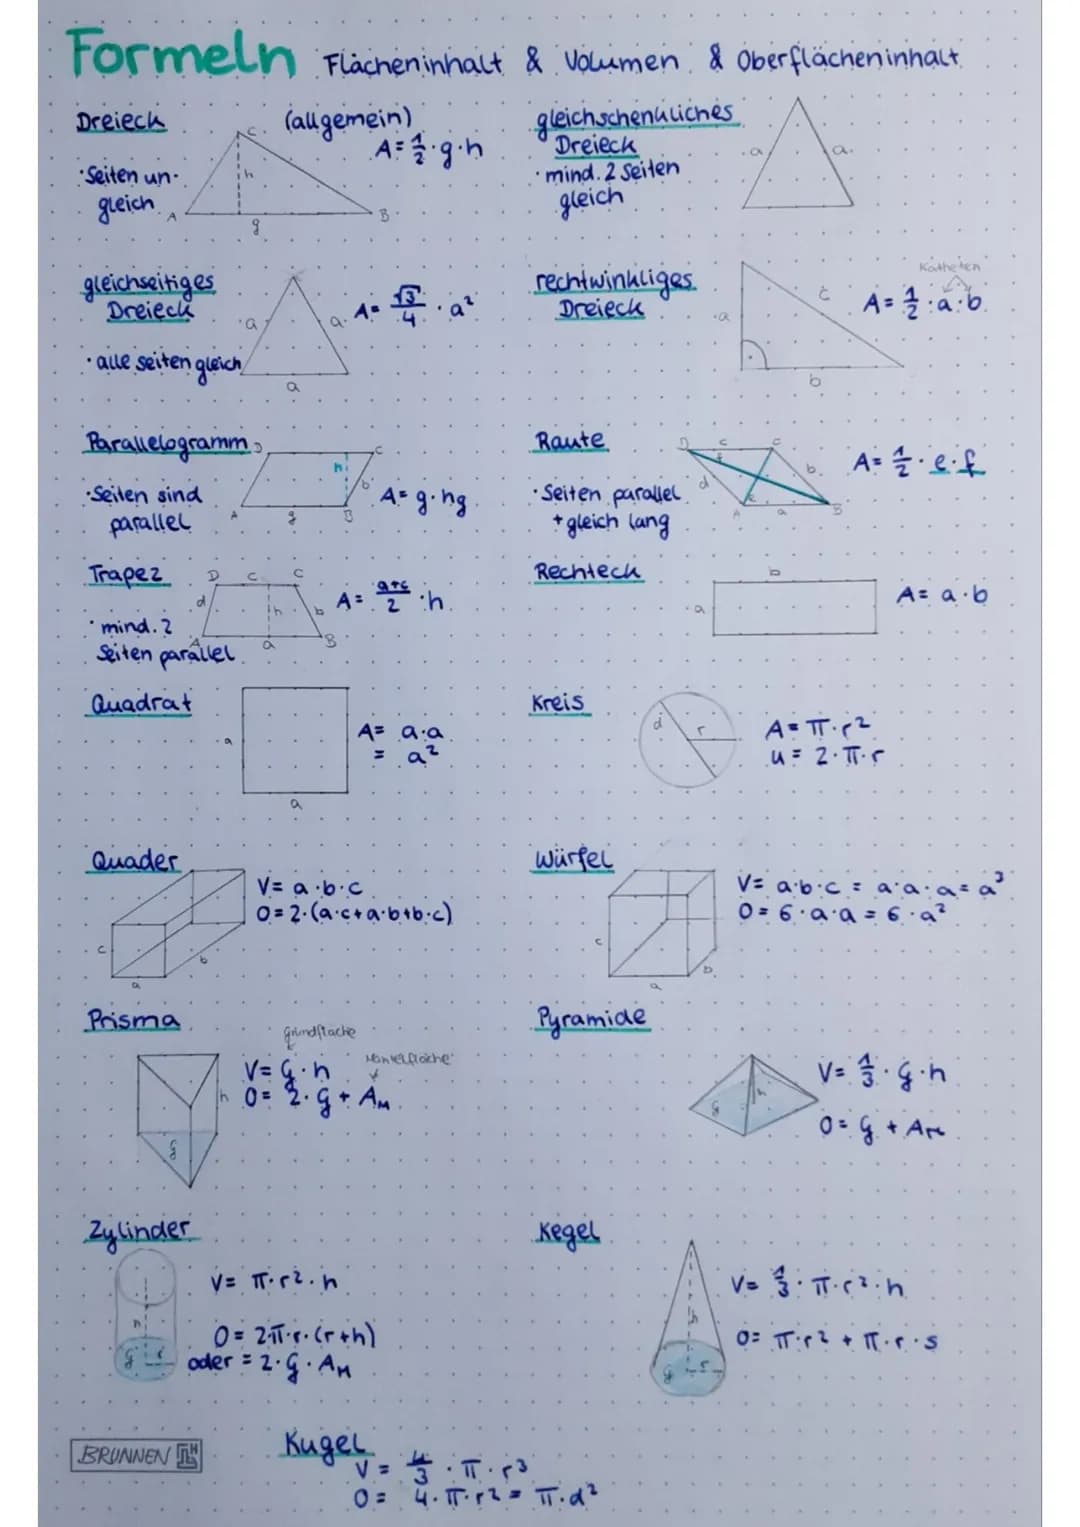 Formeln Flächeninhalt & Volumen & Oberflächeninhalt
Dreieck (allgemein)
A = 1/2 · g · h
· Seiten un-
gleich
C
h
A
g
B
gleichschenkliches
Dreieck
· mind. 2 Seiten
gleich
a
a
gleichseitiges
Dreieck
· alle Seiten gleich
a
a
a
A = √3/4 · a²
rechtwinkliges
Dreieck
a
c
b
Katheten
A = 1/2 · a · b
Parallelogramm
· Seiten sind
parallel
D
C
h
b
A
g
B
A = g · hg
Raute
· Seiten parallel
+ gleich lang
D
c
C
f
d
b
e
A
a
B
A = 1/2 · e · f
Trapez
· mind. 2
Seiten parallel
D
c
C
d
h
b
A
a
B
A = a+c/2 · h
Rechteck
b
a
A = a · b
Quadrat
a
a
A = a · a
= a²
Kreis
d
r
A = π · r²
u = 2 · π · r
Quader
c
a
b
V = a · b · c
O = 2 · (a · c + a · b + b · c)
Würfel
c
a
b
V = a · b · c = a · a · a = a³
O = 6 · a · a = 6 · a²
Prisma
Grundfläche
Mantelfläche
V = G · h
O = 2 · G + AM
h
G
Pyramide
G
h
V = 1/3 · G · h
O = G + AM
Zylinder
h
G
r
V = π · r² · h
O = 2 · π · r · (r + h)
oder = 2 · G · AM
Kegel
h
G
r
V = 1/3 · π · r² · h
O = π · r² + π · r · s
BRUNNEN
Kugel
V = 4/3 · π · r³
O = 4 · π · r² = π · d²